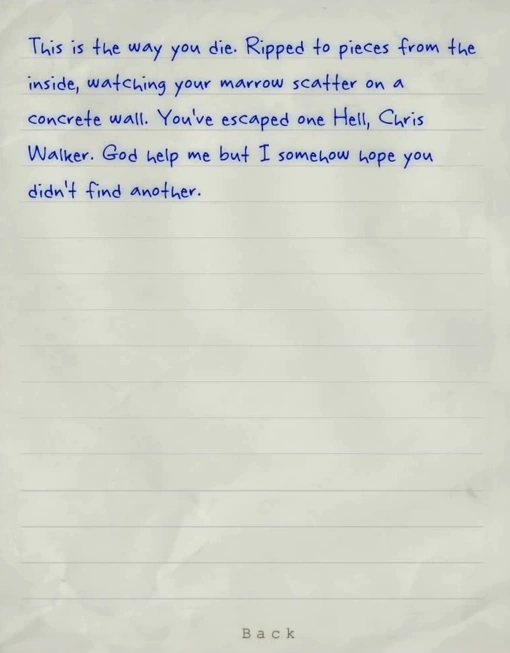 This is the way you die. Ripped to pieces from the
inside, watching your marrow scatter on a
concrete wall. You've escaped one Hell, Chris
Walker. God help me but I somehow hope you
didn't find another.
Back